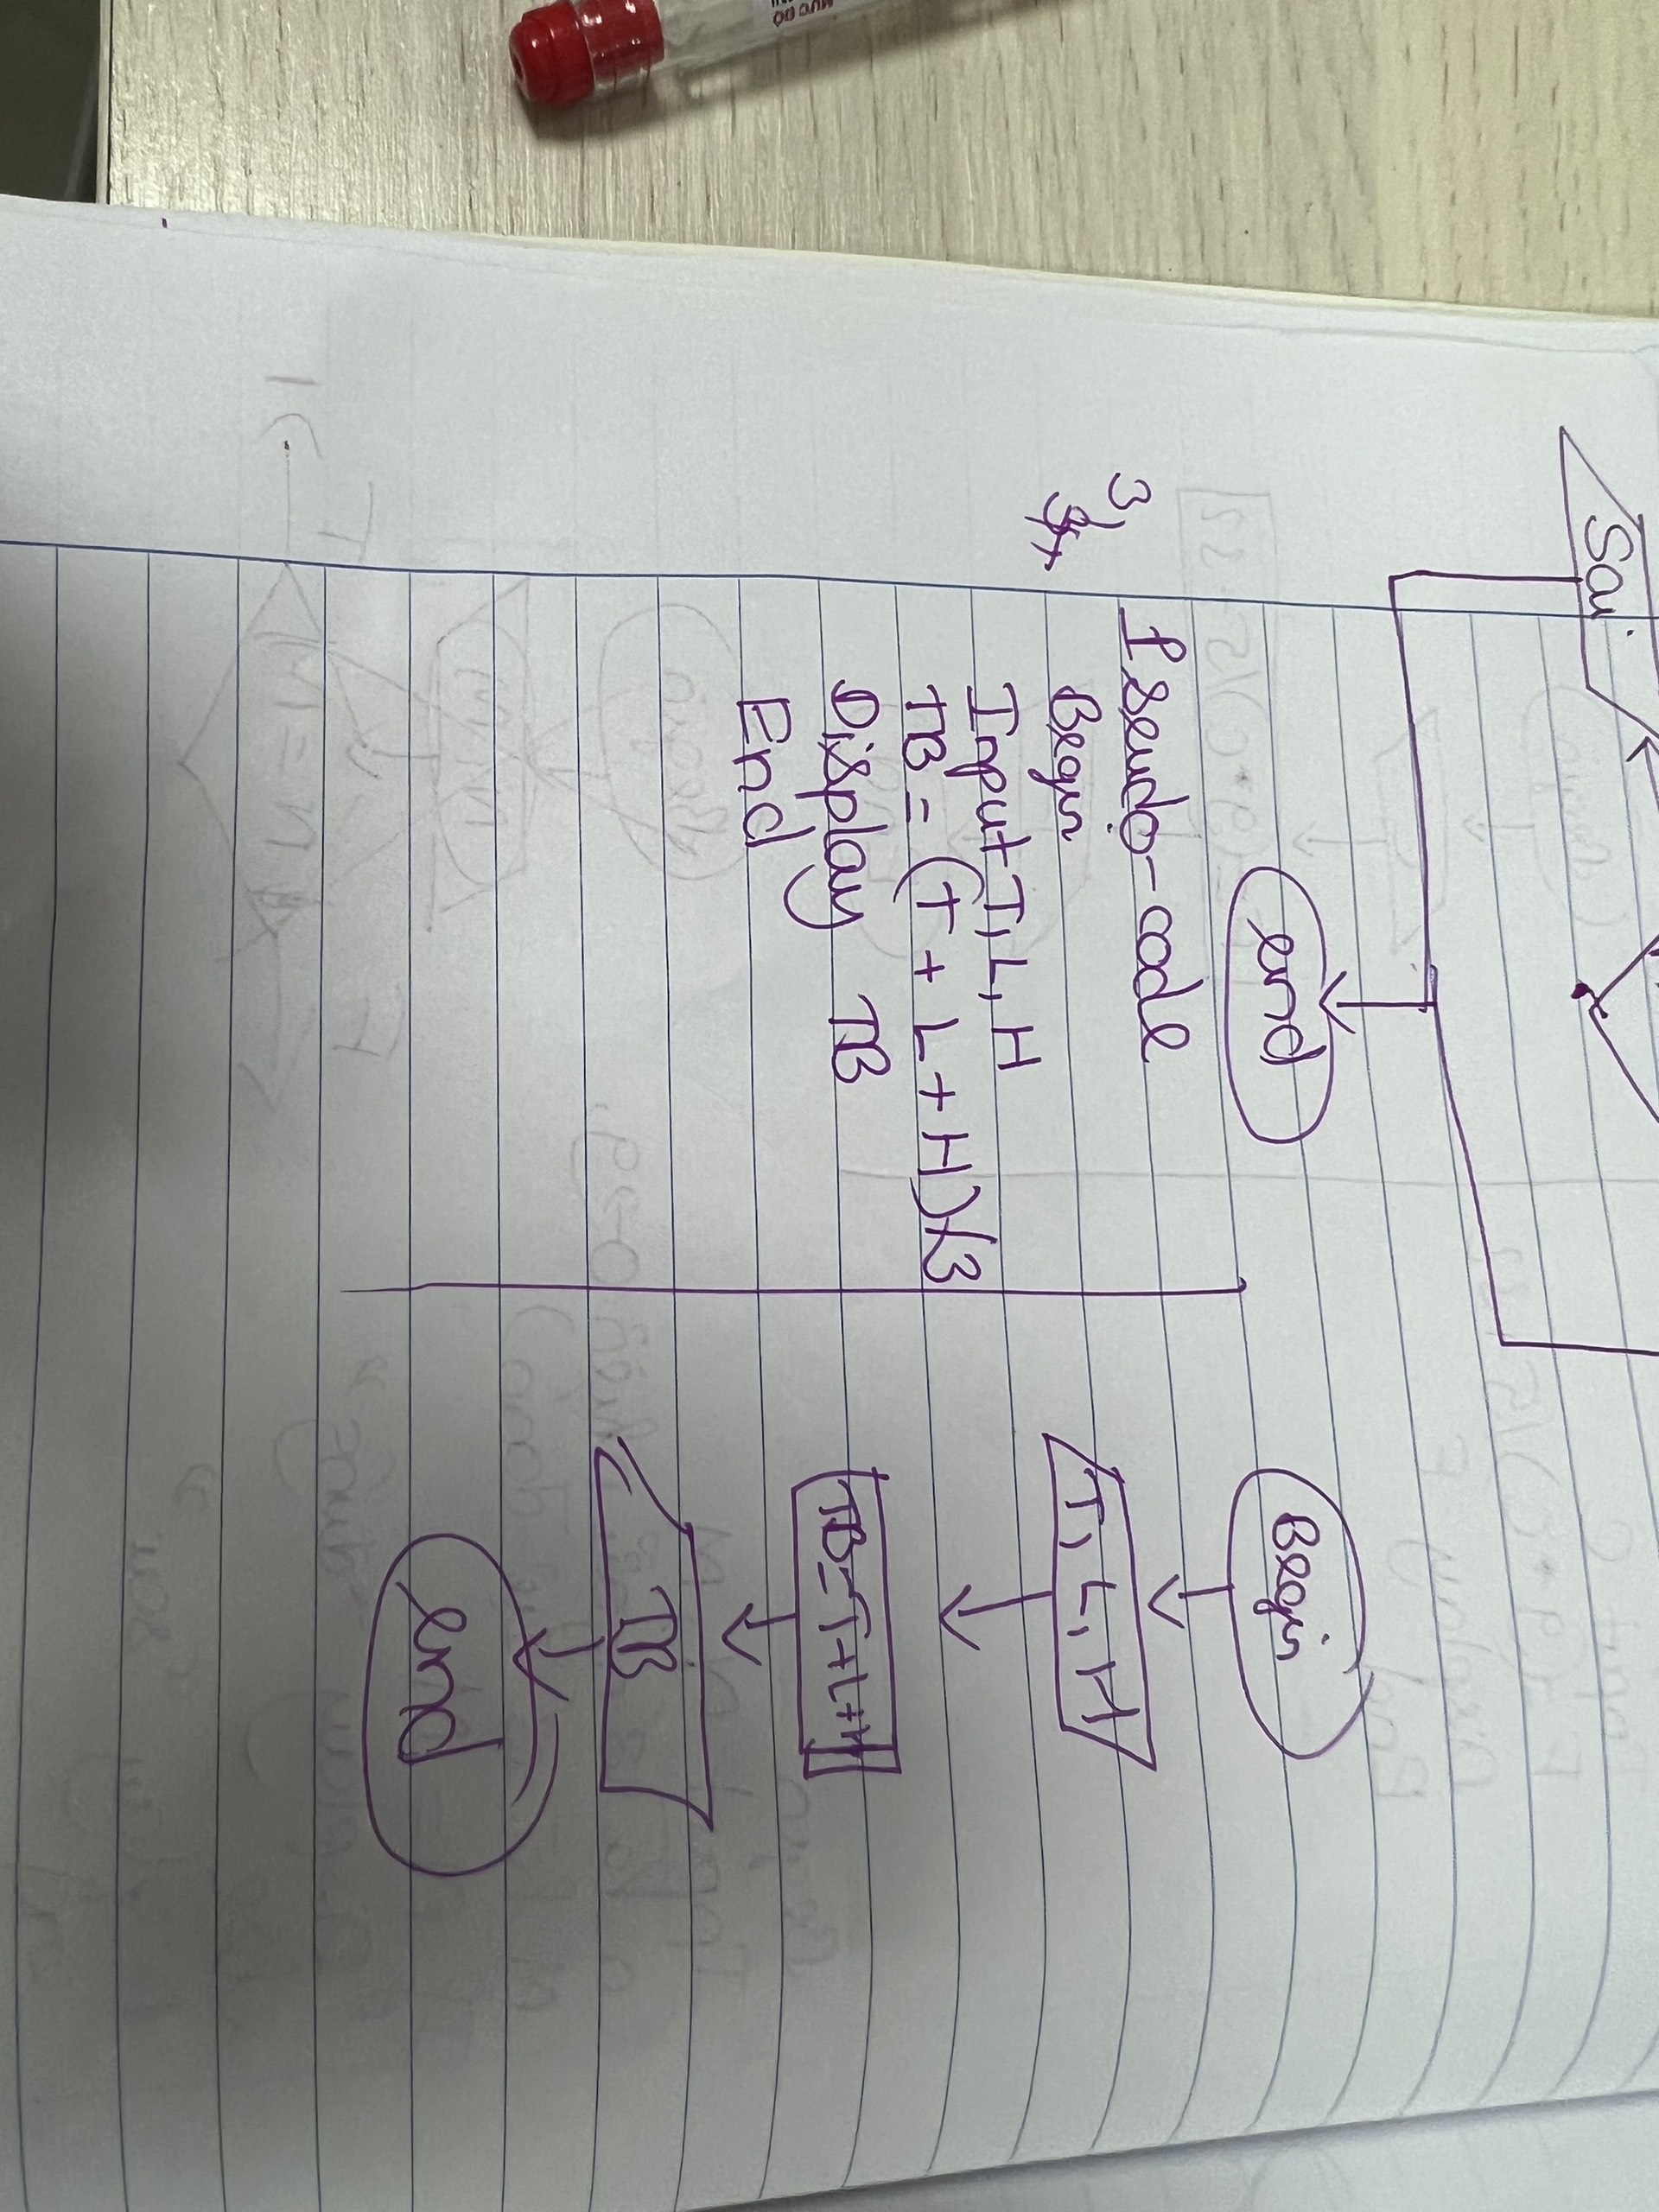 Sai
end
3,
Pseudo-code
Begin
Input T, L, H
TB = (T + L + H)/3
Display TB
End
Begin
T, L, H
TB=T+L+H
TB
end